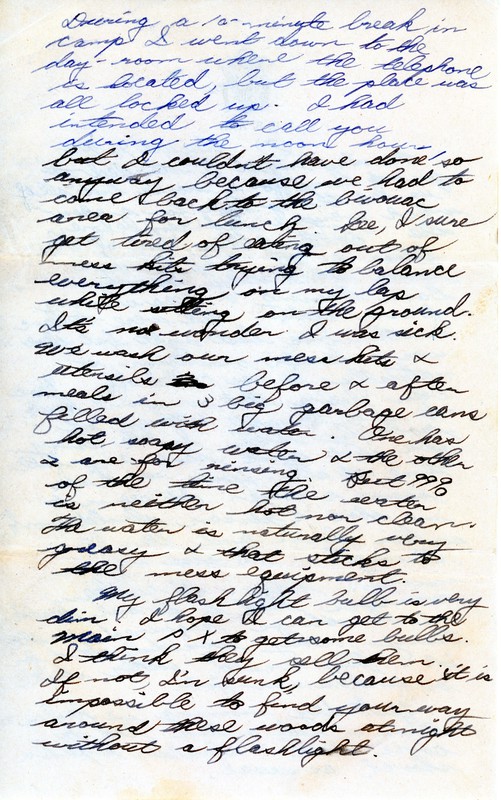 During a 10-minute break in
camp I went down to the
day-room where the telephone
is located, but the place was
all locked up. I had
intended to call you
during the noon hour,
but I couldn't have done so
anyway because we had to
come back to the bivouac
area for lunch. Gee, I sure
get tired of eating out of
mess kits trying to balance
everything on my lap
while sitting on the ground.
It's no wonder I was sick.
We wash our mess kits &
utensils before & after
meals in 3 big garbage cans
filled with water. One has
hot soapy water & the other
2 are for rinsing. But 99%
of the time the water
is neither hot nor clean.
The water is naturally very
greasy & that sticks to
the mess equipment.
My flashlight bulb is very
dim. I hope I can get to the
main PX to get some bulbs.
I think they sell them.
If not, I'm sunk, because it is
impossible to find your way
around these woods at night
without a flashlight.